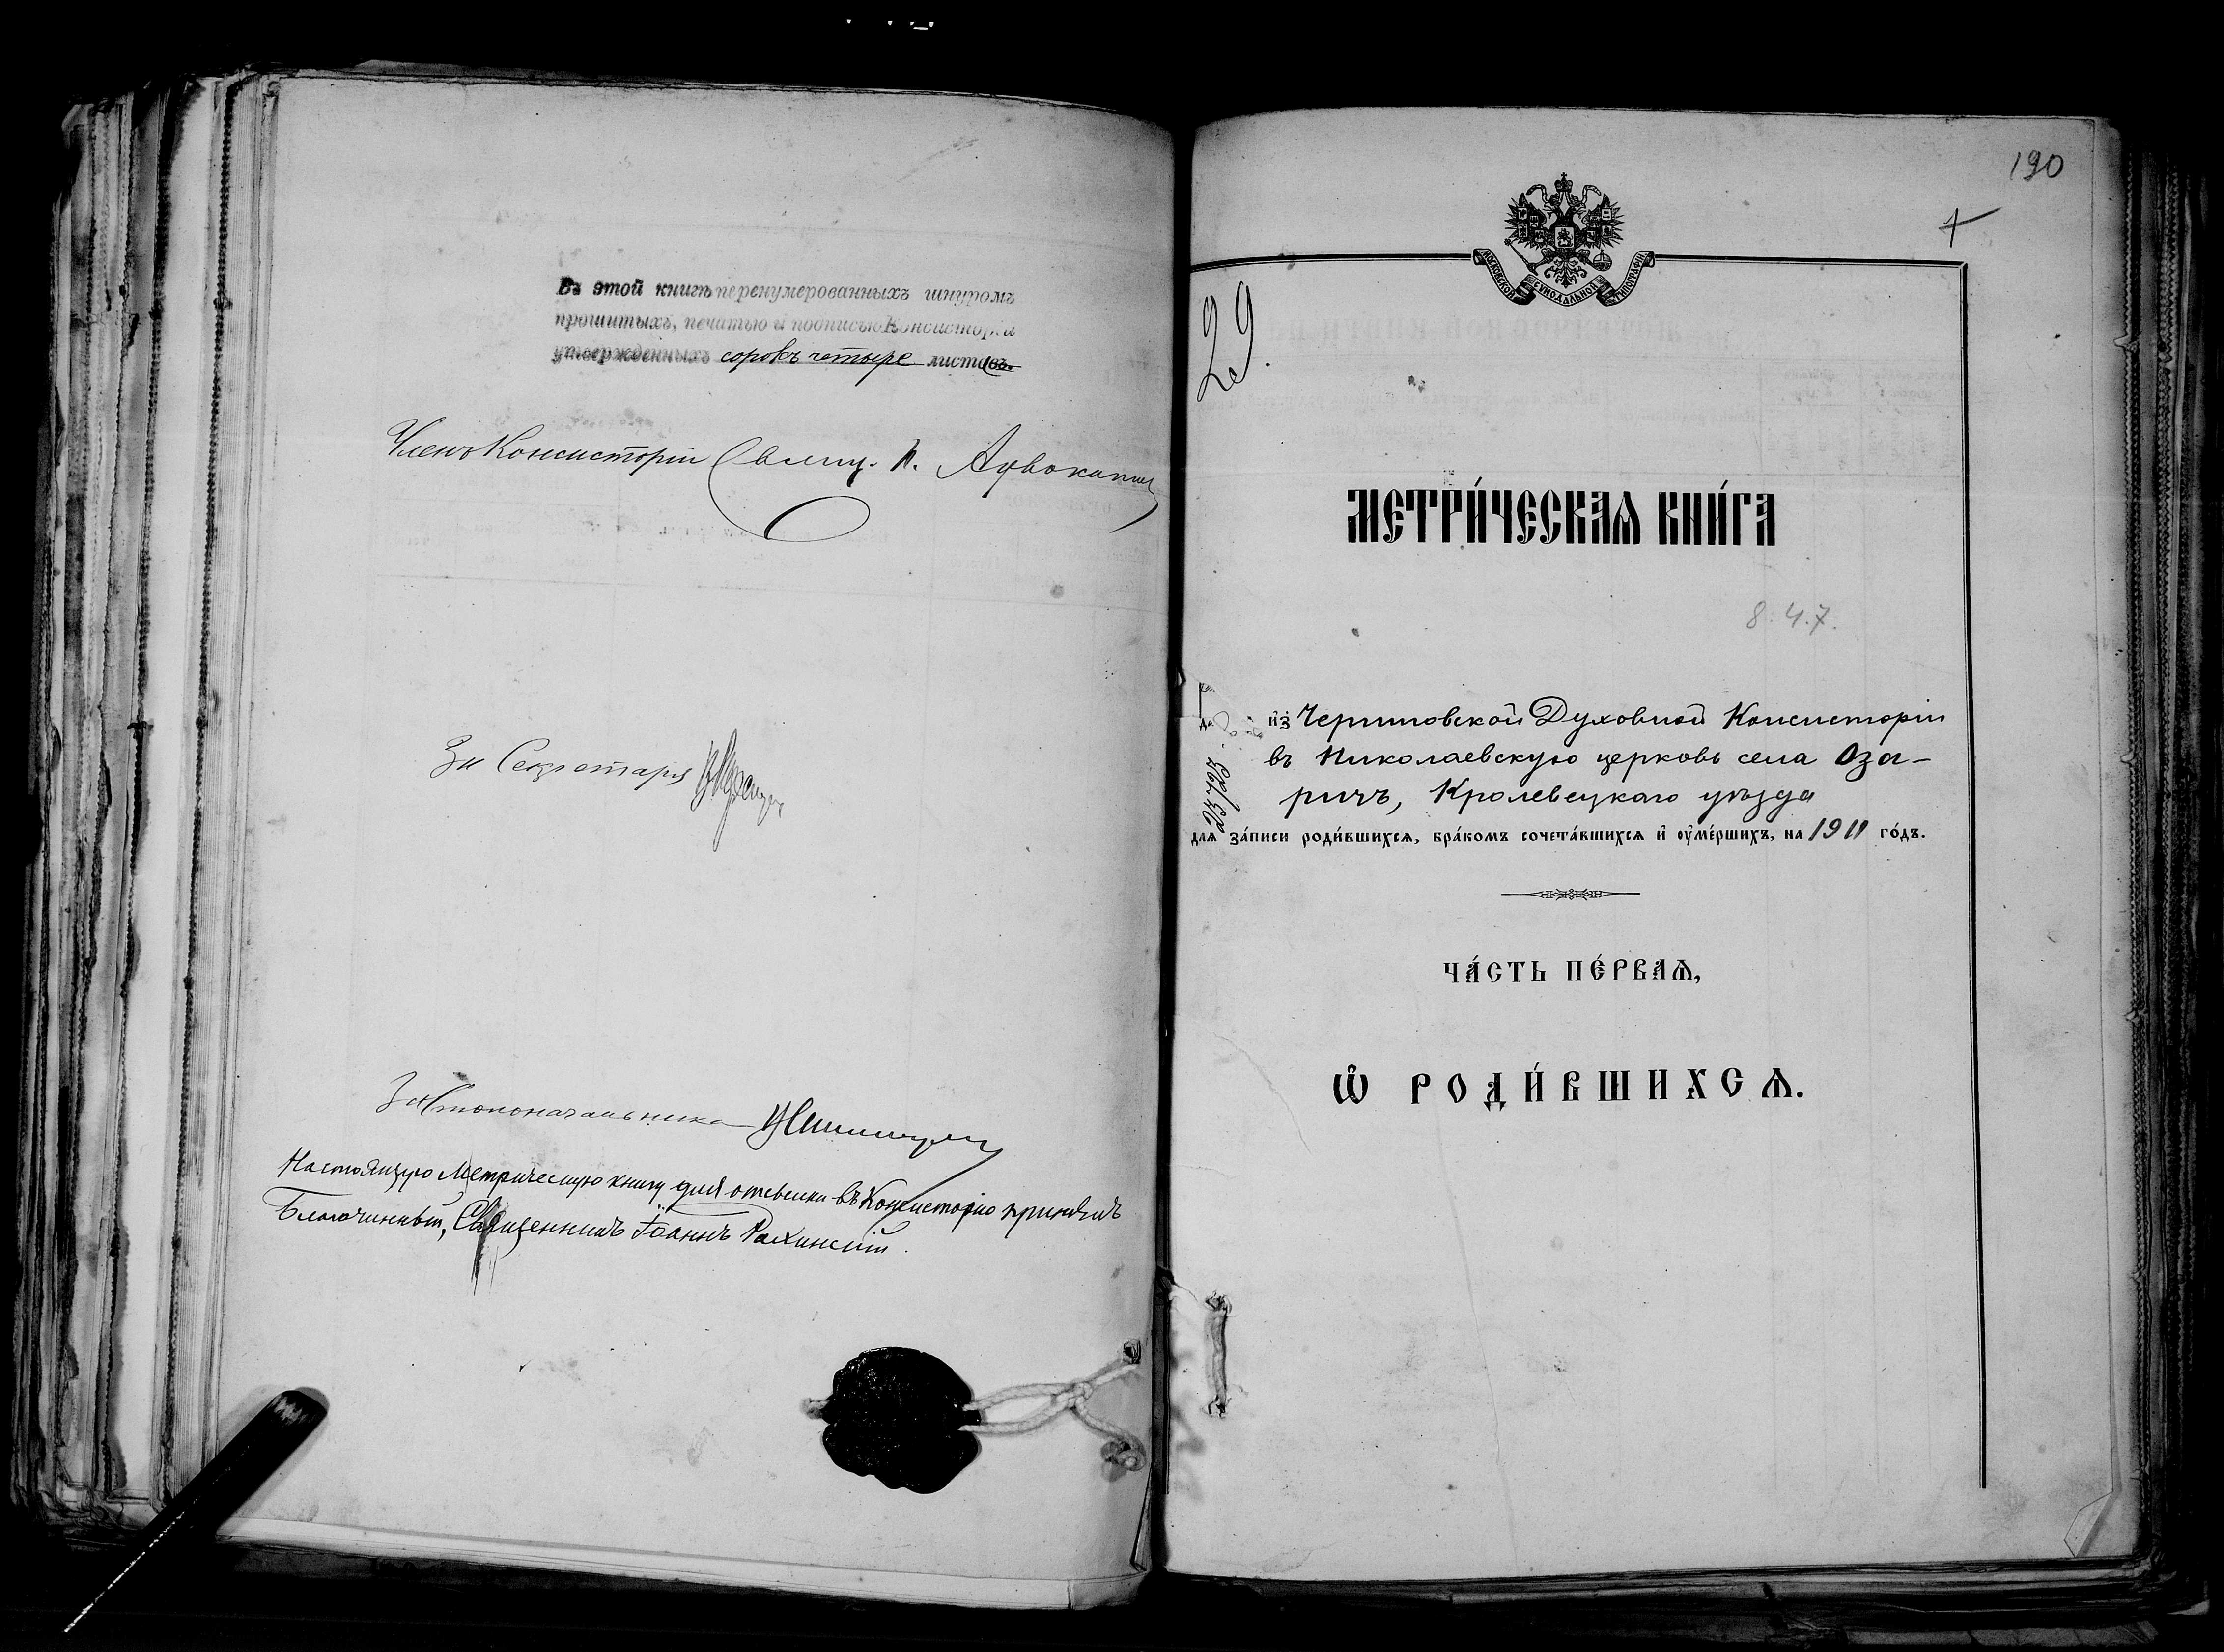 Въ этой книгѣ перенумерованныхъ шнуромъ
прошитыхъ, печатью и подписью Консисторіи
утвержденныхъ сорокъ четыре листовъ.
Членъ Консисторіи Свящ. А. Адвокатовъ
За Секретаря
За Столоначальника
Настоящую Метрическую книгу для отсылки въ Консисторію принялъ
Благочинный, Священникъ Іоаннъ
190
МОСКОВСКОЙ СѴНОДАЛЬНОЙ ТИПОГРАФІИ
29.
МЕТРИ́ЧЕСКАѦ КНИ́ГА
8.4.7.
и҆з̾ Черниговской Духовной Консисторіи
въ Николаевскую церковь села Оза-
ричъ, Кролевецкаго уѣзда
для за́писи роди́вшихсѧ, бра́комъ сочета́вшихсѧ и҆ оу҆ме́ршихъ, на 1911 го́дъ.
ЧА́СТЬ ПЕ́РВАѦ,
Ѡ҆ РОДИ́ВШИХСѦ.